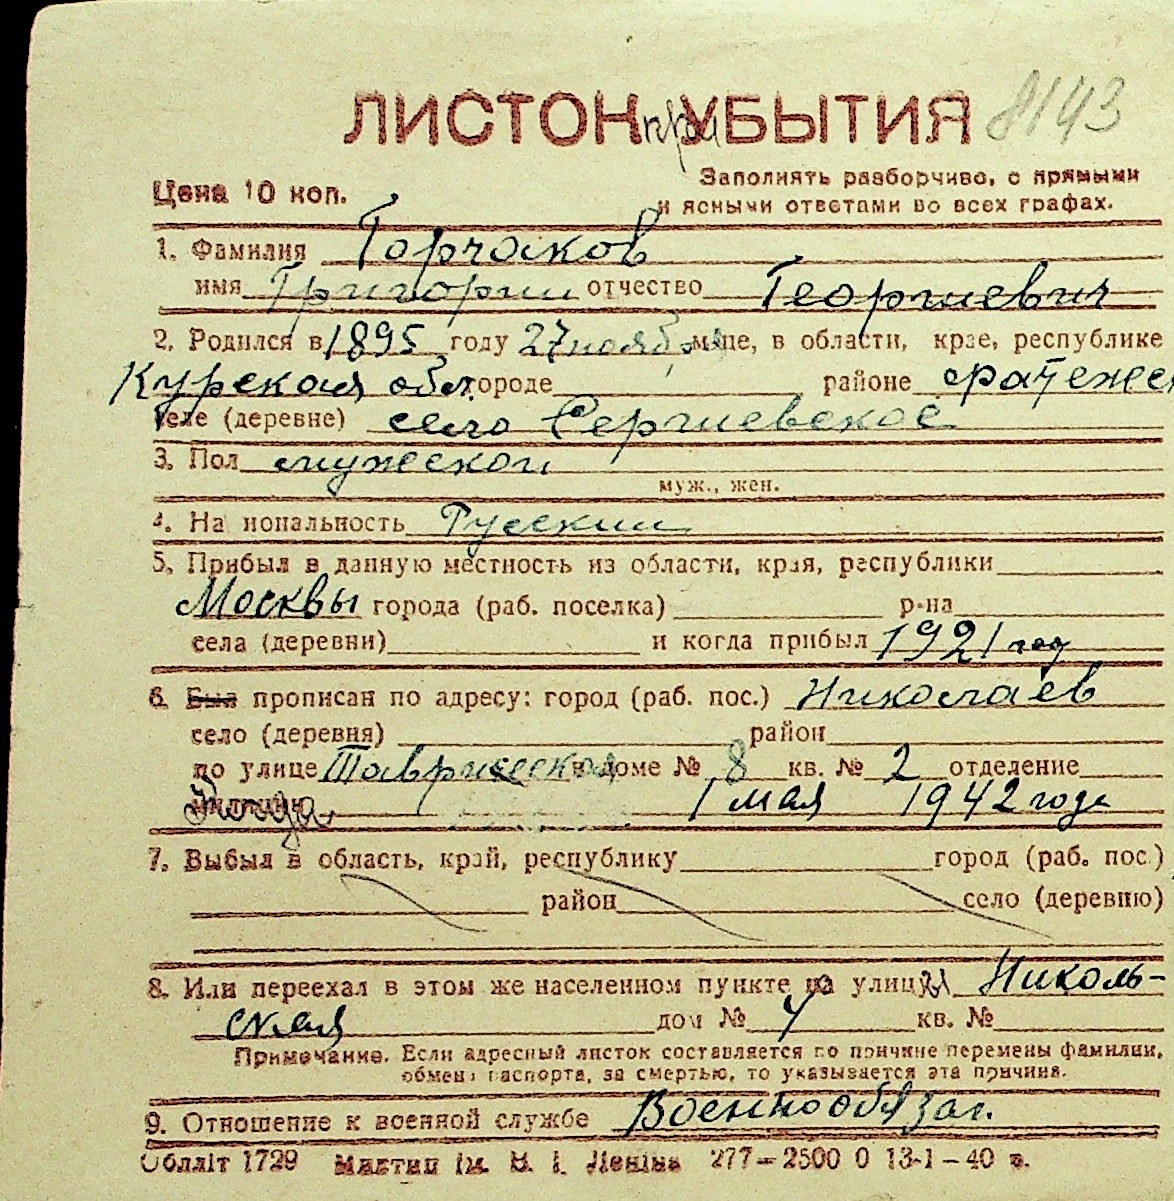 ЛИСТОК при УБЫТИЯ 8143
Цена 10 коп.
Заполнять разборчиво, с прямыми
и ясными ответами во всех графах.
1. Фамилия Горчаков
имя Григорий отчество Георгиевич
2. Родился в 1895 году 27 ноября м-це, в области, крае, республике
Курская обл. городе районе фатежск
селе (деревне) село Сергиевское
3. Пол мужской
муж., жен.
4. Национальность Русский
5. Прибыл в данную местность из области, края, республики
Москвы города (раб. поселка) р-на
села (деревни) и когда прибыл 1921 год
6. Был прописан по адресу: город (раб. пос.) Николаев
село (деревня) район
по улице Таврическая в доме № 8 кв. № 2 отделение
милиции Когда 1 мая 1942 года
7. Выбыл в область, край, республику город (раб. пос.)
район село (деревню)
8. Или переехал в этом же населенном пункте на улицу Николь-
ская дом № 4 кв. №
Примечание. Если адресный листок составляется по причине перемены фамилии,
обмена паспорта, за смертью, то указывается эта причина.
9. Отношение к военной службе Военнообязаг.
Обллiт 1729 iм. В. I. Ленiна 277—2500 0 13-1—40 р.